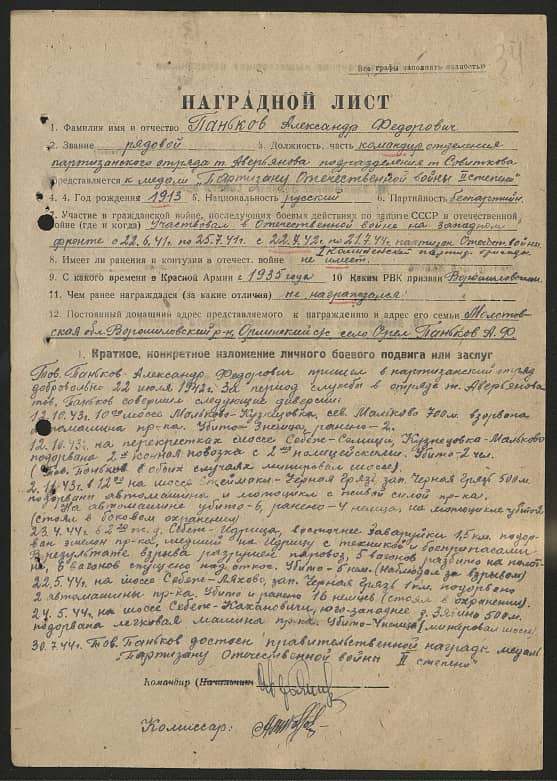 34
Все графы заполнять полностью
НАГРАДНОЙ ЛИСТ
1. Фамилия имя и отчество Паньков Александр Федорович
2. Звание рядовой 3. Должность, часть командир отделения
партизанского отряда т. Аверьянова подразделение т.
представляется к медали „Партизану Отечественной войны II степени"
4. 4. Год рождения 1913 5. Национальность русский 6. Партийность беспартийн.
7. Участие в гражданской войне, последующих боевых действиях по защите СССР в отечественной
войне (где и когда) Участвовал в Отечественной войне на западном
фронте с 22.6.41г. по 25.7.41г. с 22.7.42г. по 21.7.44г. партизан Отечеств. войны
8. Имеет ли ранения и контузии в отечест. войне не имеет. 1 Калининской партиз. бригады
9. С какого времени в Красной Армии с 1935 года 10 Каким РВК призван Ворошиловским
11. Чем ранее награждался (за какие отличия) не награждался
12. Постоянный домашний адрес представляемого к награждению и адрес его семьи Молотов-
ская обл. Ворошиловский р-н, с/с село Орел Паньков А.Ф.
1. Краткое, конкретное изложение личного боевого подвига или заслуг
Тов. Паньков Александр Федорович пришел в партизанский отряд
добровольно 22 июля 1942г. За период службы в отряде т. Аверьянова
тов. Паньков совершил следующие диверсии:
12.10.43г. на шоссе Мальково-Кузнецовка, сев. Мальково 700м. взорвана
автомашина пр-ка. Убито-3 немца, ранено-2.
12.10.43г. на перекрестках шоссе Себеж- Кузнецовка-Мальково
подорвана 2х конная повозка с 2мя полицейскими. Убито-2 чел.
(Тов. Паньков в обоих случаях минировал шоссе).
2.11.43г. в 12 на шоссе Черная грязь, зап. Черная грязь 500м.
подорваны автомашина и мотоцикл с живой силой пр-ка.
На автомашине убито-6, ранено-4 немца, на мотоцикле убито
(стоял в боковом охранении)
23.4.44г. в ж.д. Себеж-Идрица, восточнее Заваруйки 1,5 км. подор-
ван эшелон пр-ка, шедший на Идрицу с техникой и боеприпасами
В результате взрыва разрушен паровоз, 5 вагонов разбито на полот-
не, 8 вагонов спущено под откос. Убито-5 нем. (Наблюдал за взрывом)
22.5.44г. на шоссе Себеж-Ляхово, зап. Черная грязь 1км. подорвано
2 автомашины пр-ка. Убито и ранено 16 немцев (стоял в охранении).
24.5.44г. на шоссе Себеж-Кахановичи, юго-западнее д. 500м.
подорвана легковая машина пр-ка. Убито-4 немца (минировал шоссе)
30.7.44г. Тов. Паньков достоин правительственной награды медали
„Партизану Отечественной войны II степени"
Командир (Начальник)
Комиссар: